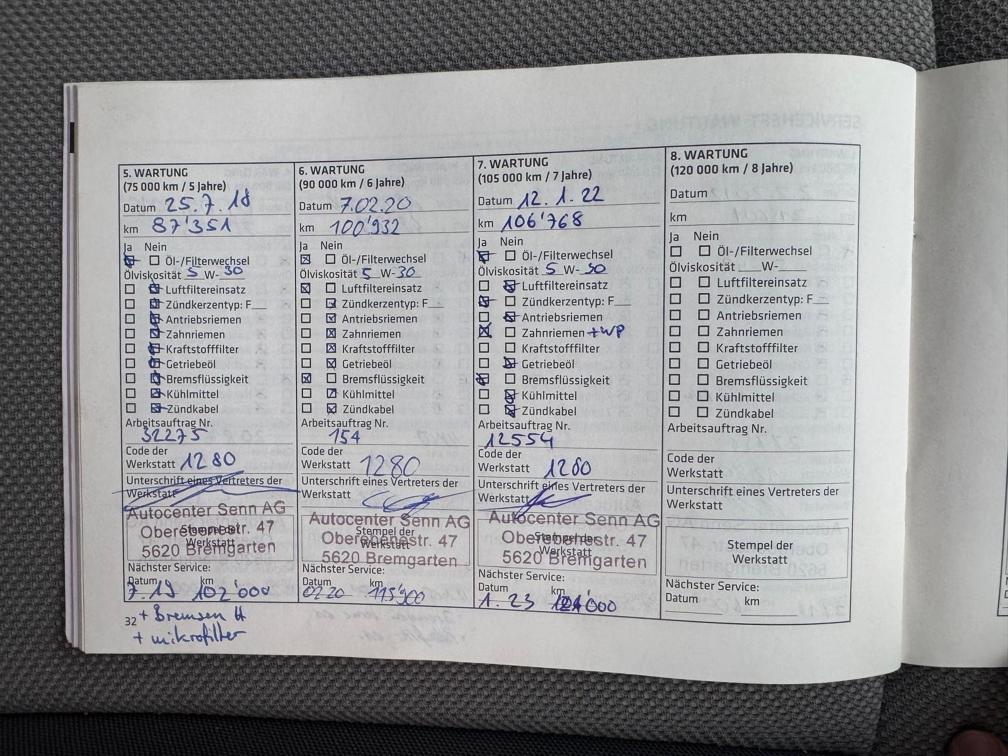 5. WARTUNG
(75 000 km / 5 Jahre)
Datum 25.7.18
km 87'351
Ja Nein
Öl-/Filterwechsel
Ölviskosität 5 W-30
Luftfiltereinsatz
Zündkerzentyp: F
Antriebsriemen
Zahnriemen
Kraftstofffilter
Getriebeöl
Bremsflüssigkeit
Kühlmittel
Zündkabel
Arbeitsauftrag Nr.
32275
Code der
Werkstatt 1280
Unterschrift eines Vertreters der
Werkstatt
Autocenter Senn AG
Oberebenestr. 47
Stempel der
Werkstatt
5620 Bremgarten
Nächster Service:
Datum km
7.19 102'000
32 + Bremsen H
+ mikrofilter
6. WARTUNG
(90 000 km / 6 Jahre)
Datum 7.02.20
km 100'932
Ja Nein
Öl-/Filterwechsel
Ölviskosität 5 W-30
Luftfiltereinsatz
Zündkerzentyp: F
Antriebsriemen
Zahnriemen
Kraftstofffilter
Getriebeöl
Bremsflüssigkeit
Kühlmittel
Zündkabel
Arbeitsauftrag Nr.
154
Code der
Werkstatt 1280
Unterschrift eines Vertreters der
Werkstatt
Autocenter Senn AG
Stempel der
Oberebenestr. 47
Werkstatt
5620 Bremgarten
Nächster Service:
Datum km
02.20
7. WARTUNG
(105 000 km / 7 Jahre)
Datum 12.1.22
km 106'768
Ja Nein
Öl-/Filterwechsel
Ölviskosität 5 W-30
Luftfiltereinsatz
Zündkerzentyp: F
Antriebsriemen
Zahnriemen +WP
Kraftstofffilter
Getriebeöl
Bremsflüssigkeit
Kühlmittel
Zündkabel
Arbeitsauftrag Nr.
12554
Code der
Werkstatt 1280
Unterschrift eines Vertreters der
Werkstatt
Autocenter Senn AG
Stempel der
Oberebenestr. 47
Werkstatt
5620 Bremgarten
Nächster Service:
Datum km
1.23
8. WARTUNG
(120 000 km / 8 Jahre)
Datum
km
Ja Nein
Öl-/Filterwechsel
Ölviskosität W-
Luftfiltereinsatz
Zündkerzentyp: F
Antriebsriemen
Zahnriemen
Kraftstofffilter
Getriebeöl
Bremsflüssigkeit
Kühlmittel
Zündkabel
Arbeitsauftrag Nr.
Code der
Werkstatt
Unterschrift eines Vertreters der
Werkstatt
Stempel der
Werkstatt
Nächster Service:
Datum km